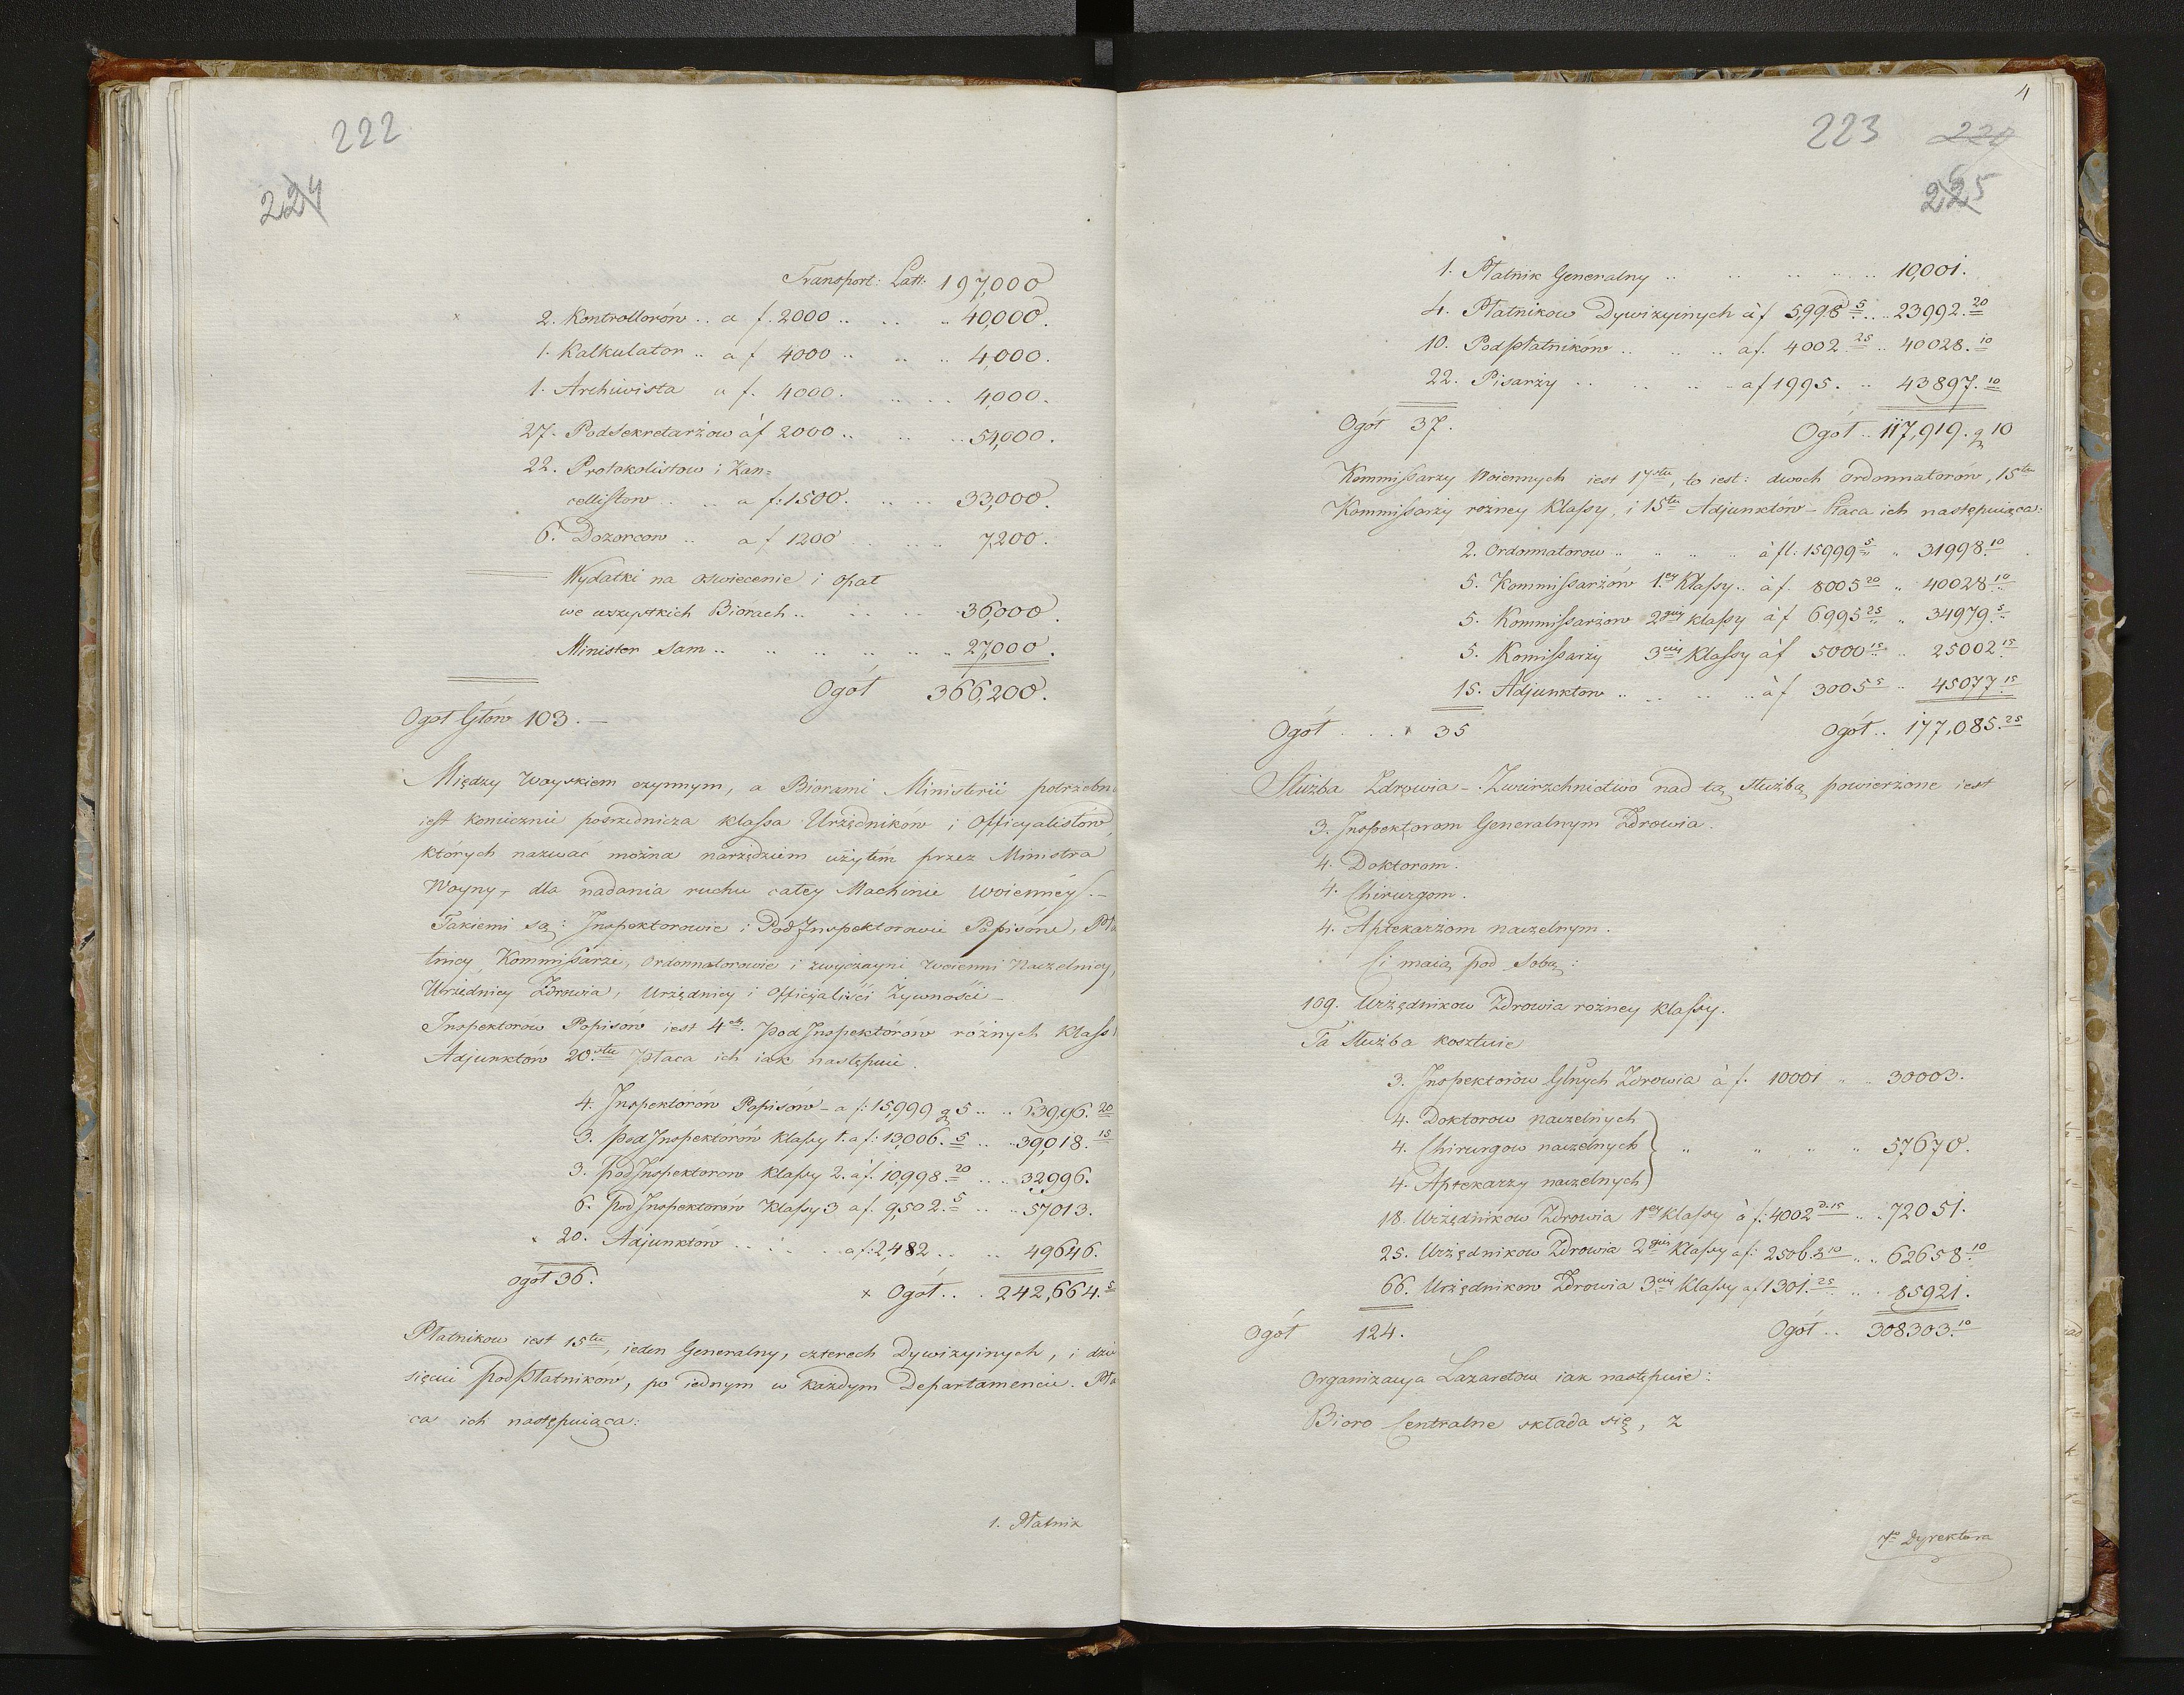 222
224
Transport: Latt: 197,000
2. Kontrollorów .. a f. 2000 .. .. .. 40,000.
1. Kalkulator .. a f 4000 .. .. .. 4,000.
1. Archiwista a f. 4000. .. .. 4,000.
27. PodSekretarzow à f 2000 .. .. .. 54,000.
22. Protokolistow i Kan=
cellistow .. .. a f: 1500. .. .. 33,000.
6. Dozorcow .. a f 1200 .. .. 7,200.
Wydatki na oswiecenie i opał
we wszystkich Biórach .. .. .. 36,000.
Minister sam .. .. .. .. .. .. 27,000.
Ogół 366,200.
Ogół Głów 103. —
Między woyskiem czynnym, a Biorami Ministerii potrzebna
iest koniecznie posrzednicza klassa Urzędnikow i Officyalistów,
których nazwać można narzędziem użytém przez Ministra
Woyny, dla nadania ruchu całey Machinie woiennéy. —
Takiemi są: Inspektorowie i PodInspektorowie Popisów, Pła
tnicy, Kommissarze, Ordonnatorowie i zwyczayni woienni Naczelnicy,
Urzędnicy Zdrowia, Urzędnicy i Officyaliści Żywności —
Inspektorów Popisów iest 4ch. PodInspektórów różnych klass
Adjunktów 20stu płaca ich iak następuie.
4. Inspektorów Popisów — a f: 15,999 g 5 .. .. 63996. 20
3. podInspektórów klassy 1. a f: 13,006. 5 .. .. 39,018. 15
3. podInspektorow klassy 2. à f. 10,998. 20 .. .. 32,996.
6. podInspektorów klassy 3 a f. 9,502. 5 .. .. 57013.
20. Adjunktów .. .. .. a f: 2,482 .. .. 49646.
ogół 36. x Ogół .. . 242,664. 5
Płatnikow iest 15tu, ieden Generalny, czterech Dywizyinych, i dzie
sięciu podpłatników, po iednym w każdym Departamencie. Pła
ca ich następuiąca:
1. Płatnik
4
223 220
225
1. Płatnik Generalny .. .. .. .. .. 10,001.
4. Płatnikow Dywizyinych à f 5,998 5 .. .. 23992. 20
10. Podpłatników .. .. .. a f. 4002. 25 .. 40028. 10
22. Pisarzy .. .. .. .. a f 1995. .. 43897. 10
Ogół 37. Ogół .. 117,919. g 10
Kommissarzy Woiennych iest 17stu, to iest: dwoch ordonnatorow, 15tu
Kommissarzy rożney klassy, i 15tu Adjunktów — Płaca ich następuiąca:
2. Ordonnatorow .. .. .. .. à fl: 15999 5 .. 31998. 10
5. Kommissarzów 1ey Klassy .. à f. 8005 20 .. 40028 10
5. Kommissarzow 2giey klassy à f 6995 25 .. 34979. 5
5. Komissarzy 3ciey Klassy à f 5000 15 .. 25002 15
15. Adjunktow .. .. .. .. à f 3005 5 .. 45077. 15
Ogół . . . 35 Ogół .. 177,085. 25
Służba Zdrowia — Zwierzchnictwo nad tą służbą, powierzone iest
3. Inspektorom Generalnym Zdrowia.
4. Doktorom.
4. Chirurgom.
4. Aptekarzom naczelnym.
Ci maią pod sobą:
109. Urzędnikow Zdrowia rożney klassy.
Ta służba kosztuie
3. Inspektorów Głnych Zdrowia à f. 10001 .. .. 30003.
4. Doktorow naczelnych
4. Chirurgow naczelnych .. .. .. .. 57670.
4. Aptekarzy naczelnych
18. Urzędnikow Zdrowia 1ey klassy à f: 4002 g. 15 .. .. 72051.
25. Urzędnikow Zdrowia 2giey Klassy a f: 2506. g 10 .. .. 62658. 10
66. Urzędnikow Zdrowia 3ciey Klassy a f 1301. 25 .. .. 85921.
Ogół 124. Ogół .. 308303. 10
Organizacya Lazaretow iak następuie:
Bioro Centralne składa się, z
1o Dyrektora